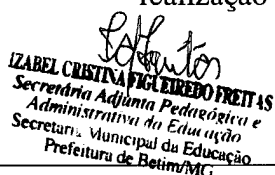 realização
IZABEL CRISTINA FIGUEIREDO FREITAS
Secretária Adjunta Pedagógica e
Administrativa da Educação
Secretaria Municipal da Educação
Prefeitura de Betim/MG